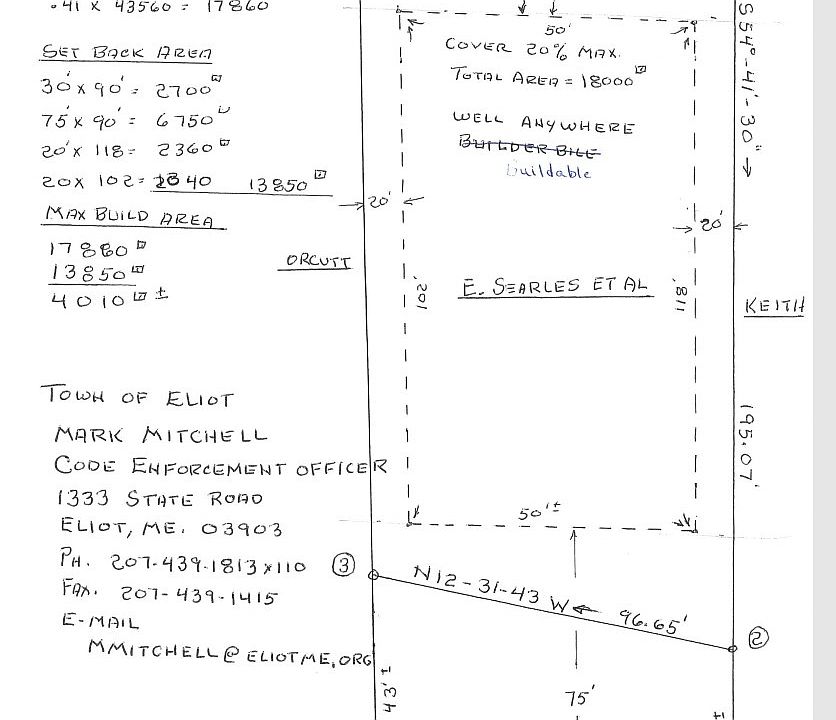 .41 x 43560 = 17860
SET BACK AREA
30' x 90' = 2700
75' x 90' = 6750
20' x 118 = 2360
20 x 102 = 2040 13850
MAX BUILD AREA
17860
13850
4010 ±
TOWN OF ELIOT
MARK MITCHELL
CODE ENFORCEMENT OFFICER
1333 STATE ROAD
ELIOT, ME. 03903
PH. 207-439-1813 x110
FAX. 207-439-1415
E-MAIL
MMITCHELL@ELIOTME.ORG
50'
COVER 20% MAX.
TOTAL AREA = 18000
WELL ANYWHERE
BUILDER BILE
buildable
20'
20'
ORCUTT
E. SEARLES ET AL
KEITH
118'
S 54°-41'-30"
195.07'
50'±
3
N12-31-43 W
96.65'
2
43'±
75'